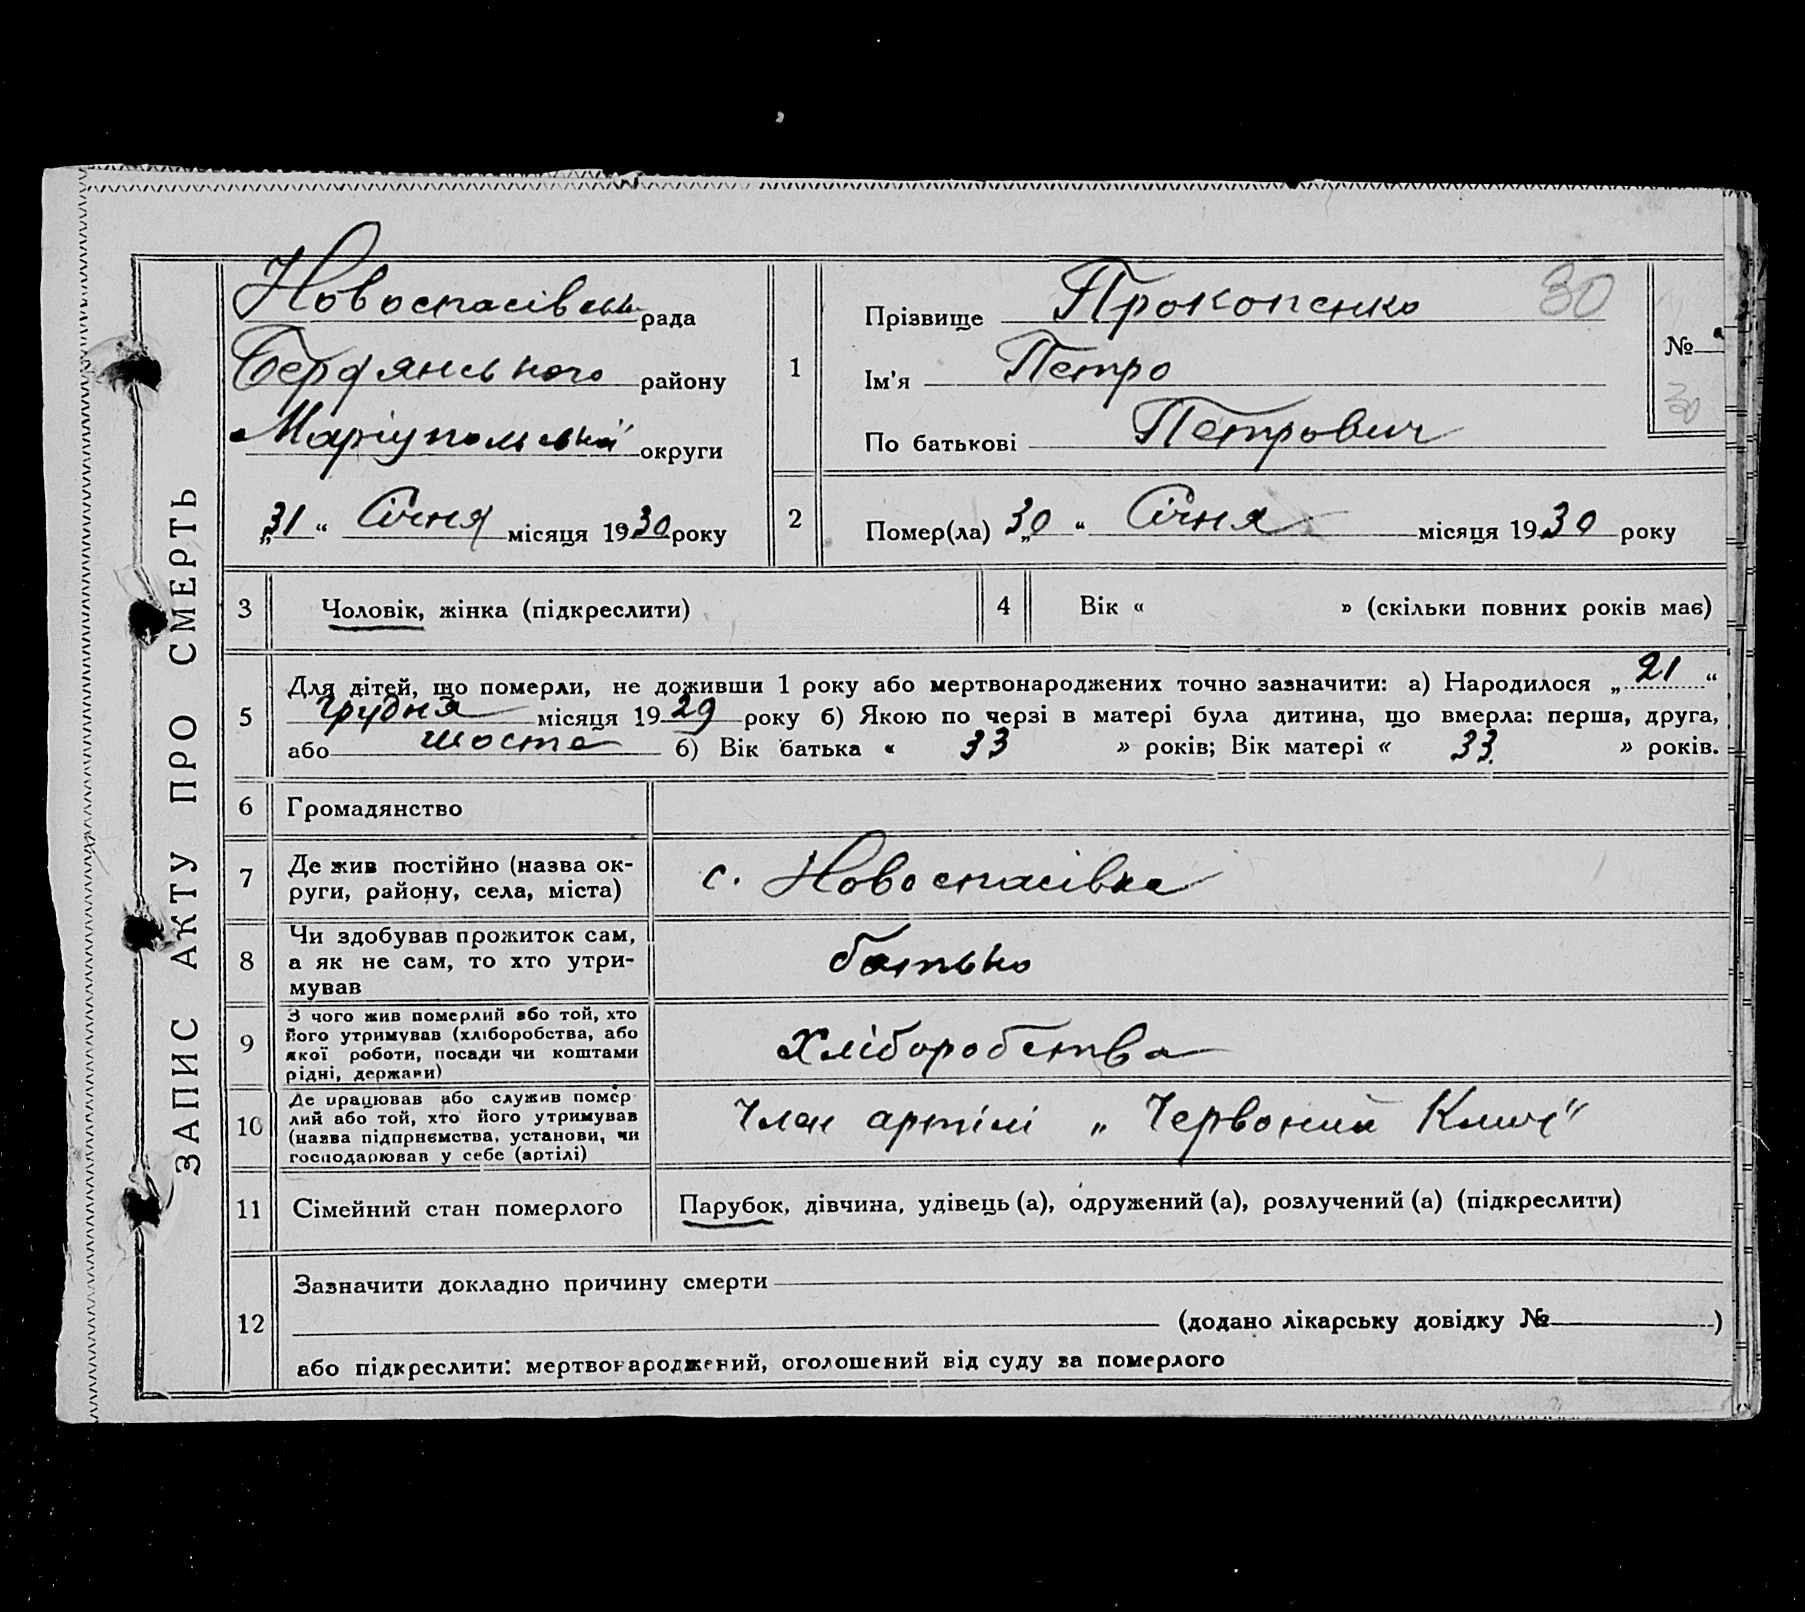 ЗАПИС АКТУ ПРО СМЕРТЬ
Новоспасівська рада
Бердянського району
Маріупольської округи
„31“ Січня місяця 1930 року
1
Прізвище Прокопенко
30
Ім'я Петро
По батькові Петрович
№
30
2
Помер(ла) „30“ Січня місяця 1930 року
3 Чоловік, жінка (підкреслити)
4 Вік « » (скільки повних років має)
5 Для дітей, що померли, не доживши 1 року або мертвонароджених точно зазначити: а) Народилося „21“
Грудня місяця 1929 року б) Якою по черзі в матері була дитина, що вмерла: перша, друга,
або шоста б) Вік батька « 33 » років; Вік матері « 33 » років.
6 Громадянство
7 Де жив постійно (назва ок-
руги, району, села, міста)
с. Новоспасівка
8 Чи здобував прожиток сам,
а як не сам, то хто утри-
мував
батько
9 З чого жив померлий або той, хто
його утримував (хліборобства, або
якої роботи, посади чи коштами
рідні, держави)
Хліборобства
10 Де працював або служив помер
лий або той, хто його утримував
(назва підприємства, установи, чи
господарював у себе (артілі)
Член артілі „Червоний Ключ"
11 Сімейний стан померлого
Парубок, дівчина, удівець (а), одружений (а), розлучений (а) (підкреслити)
12 Зазначити докладно причину смерти
(додано лікарську довідку № )
або підкреслити: мертвонароджений, оголошений від суду за померлого